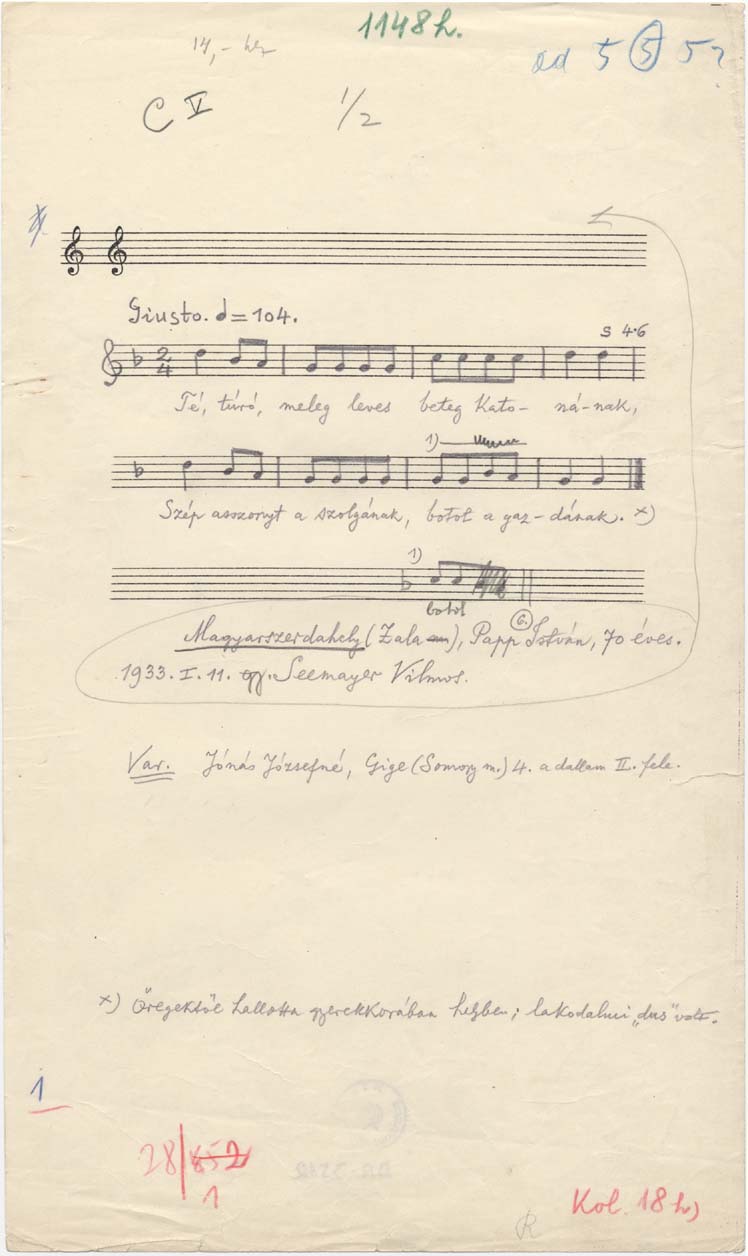 1148 h.
14,-
od 5 5 5
C V 1/2
Giusto. = 104.
s 4·6
2/4
Té, túró, meleg leves beteg kato- ná-nak,
1)
Szép asszonyt a szolgának, botot a gaz-dának. x)
1)
botot
Magyarszerdahely (Zala), Papp István, 70 éves.
6.
1933. I. 11. gy. Seemayer Vilmos.
Var. Jónás Józsefné, Gige (Somogy m.) 4. a dallam II. fele.
x) Öregektől hallotta gyerekkorában helyben; lakodalmi „dus" volt.
1
28/852
1
Kol. 18 h)
R